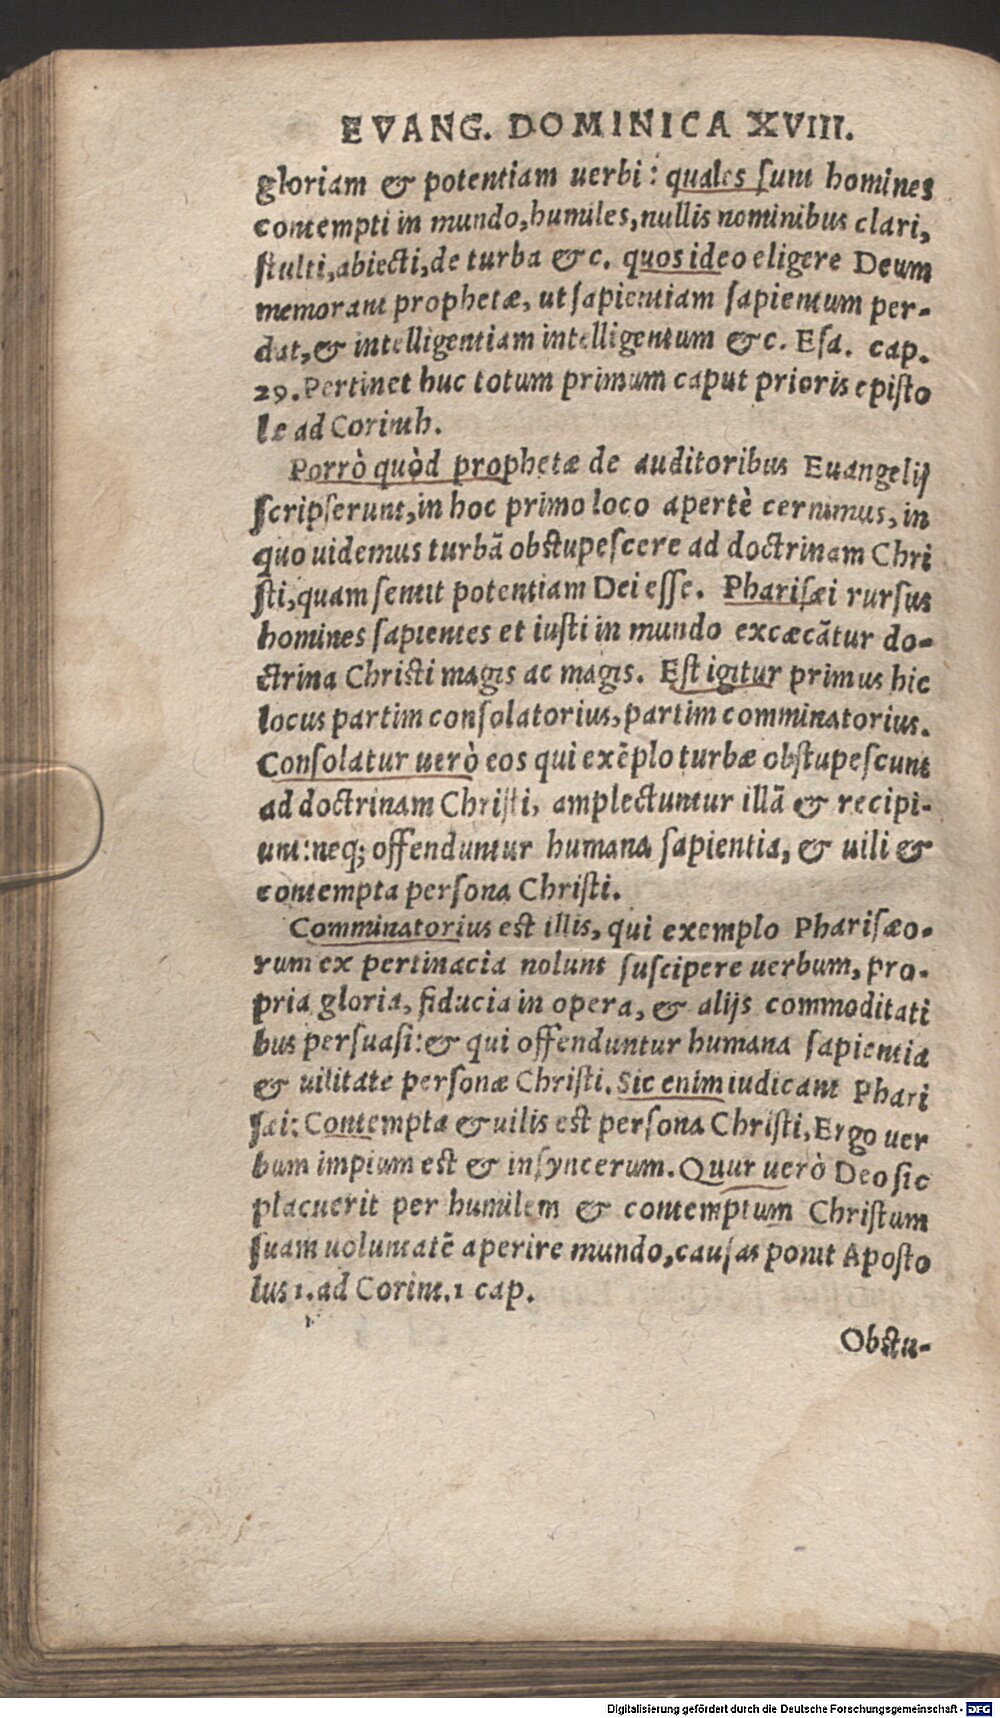 EVANG. DOMINICA XVIII.
gloriam & potentiam uerbi: quales ſunt homines
contempti in mundo, humiles, nullis nominibus clari,
ſtulti, abiecti, de turba &c. quos ideo eligere Deum
memorant prophetæ, ut ſapientiam ſapientum per-
dat, & intelligentiam intelligentum &c. Eſa. cap.
29. Pertinet huc totum primum caput prioris epiſto
læ ad Corinth.
Porrò quòd prophetæ de auditoribus Euangelij
ſcripſerunt, in hoc primo loco apertè cernimus, in
quo uidemus turbã obſtupeſcere ad doctrinam Chri
ſti, quam ſentit potentiam Dei eſſe. Phariſæi rurſus
homines ſapientes et iuſti in mundo excæcãtur do-
ctrina Chriſti magis ac magis. Eſt igitur primus hic
locus partim conſolatorius, partim comminatorius.
Conſolatur uerò eos qui exẽplo turbæ obſtupeſcunt
ad doctrinam Chriſti, amplectuntur illã & recipi-
unt: neq; offenduntur humana ſapientia, & uili &
contempta perſona Chriſti.
Comminatorius eſt illis, qui exemplo Phariſæo-
rum ex pertinacia nolunt ſuſcipere uerbum, pro-
pria gloria, fiducia in opera, & alijs commoditati
bus perſuaſi: & qui offenduntur humana ſapientia
& uilitate perſonæ Chriſti. Sic enim iudicant Phari
ſæi: Contempta & uilis eſt perſona Chriſti, Ergo uer
bum impium eſt & inſyncerum. Quur uerò Deo ſic
placuerit per humilem & contemptum Chriſtum
ſuam uoluntatẽ aperire mundo, cauſas ponit Apoſto
lus 1. ad Corint. 1 cap.
Obſtu-
Digitalisierung gefördert durch die Deutsche Forschungsgemeinschaft - DFG